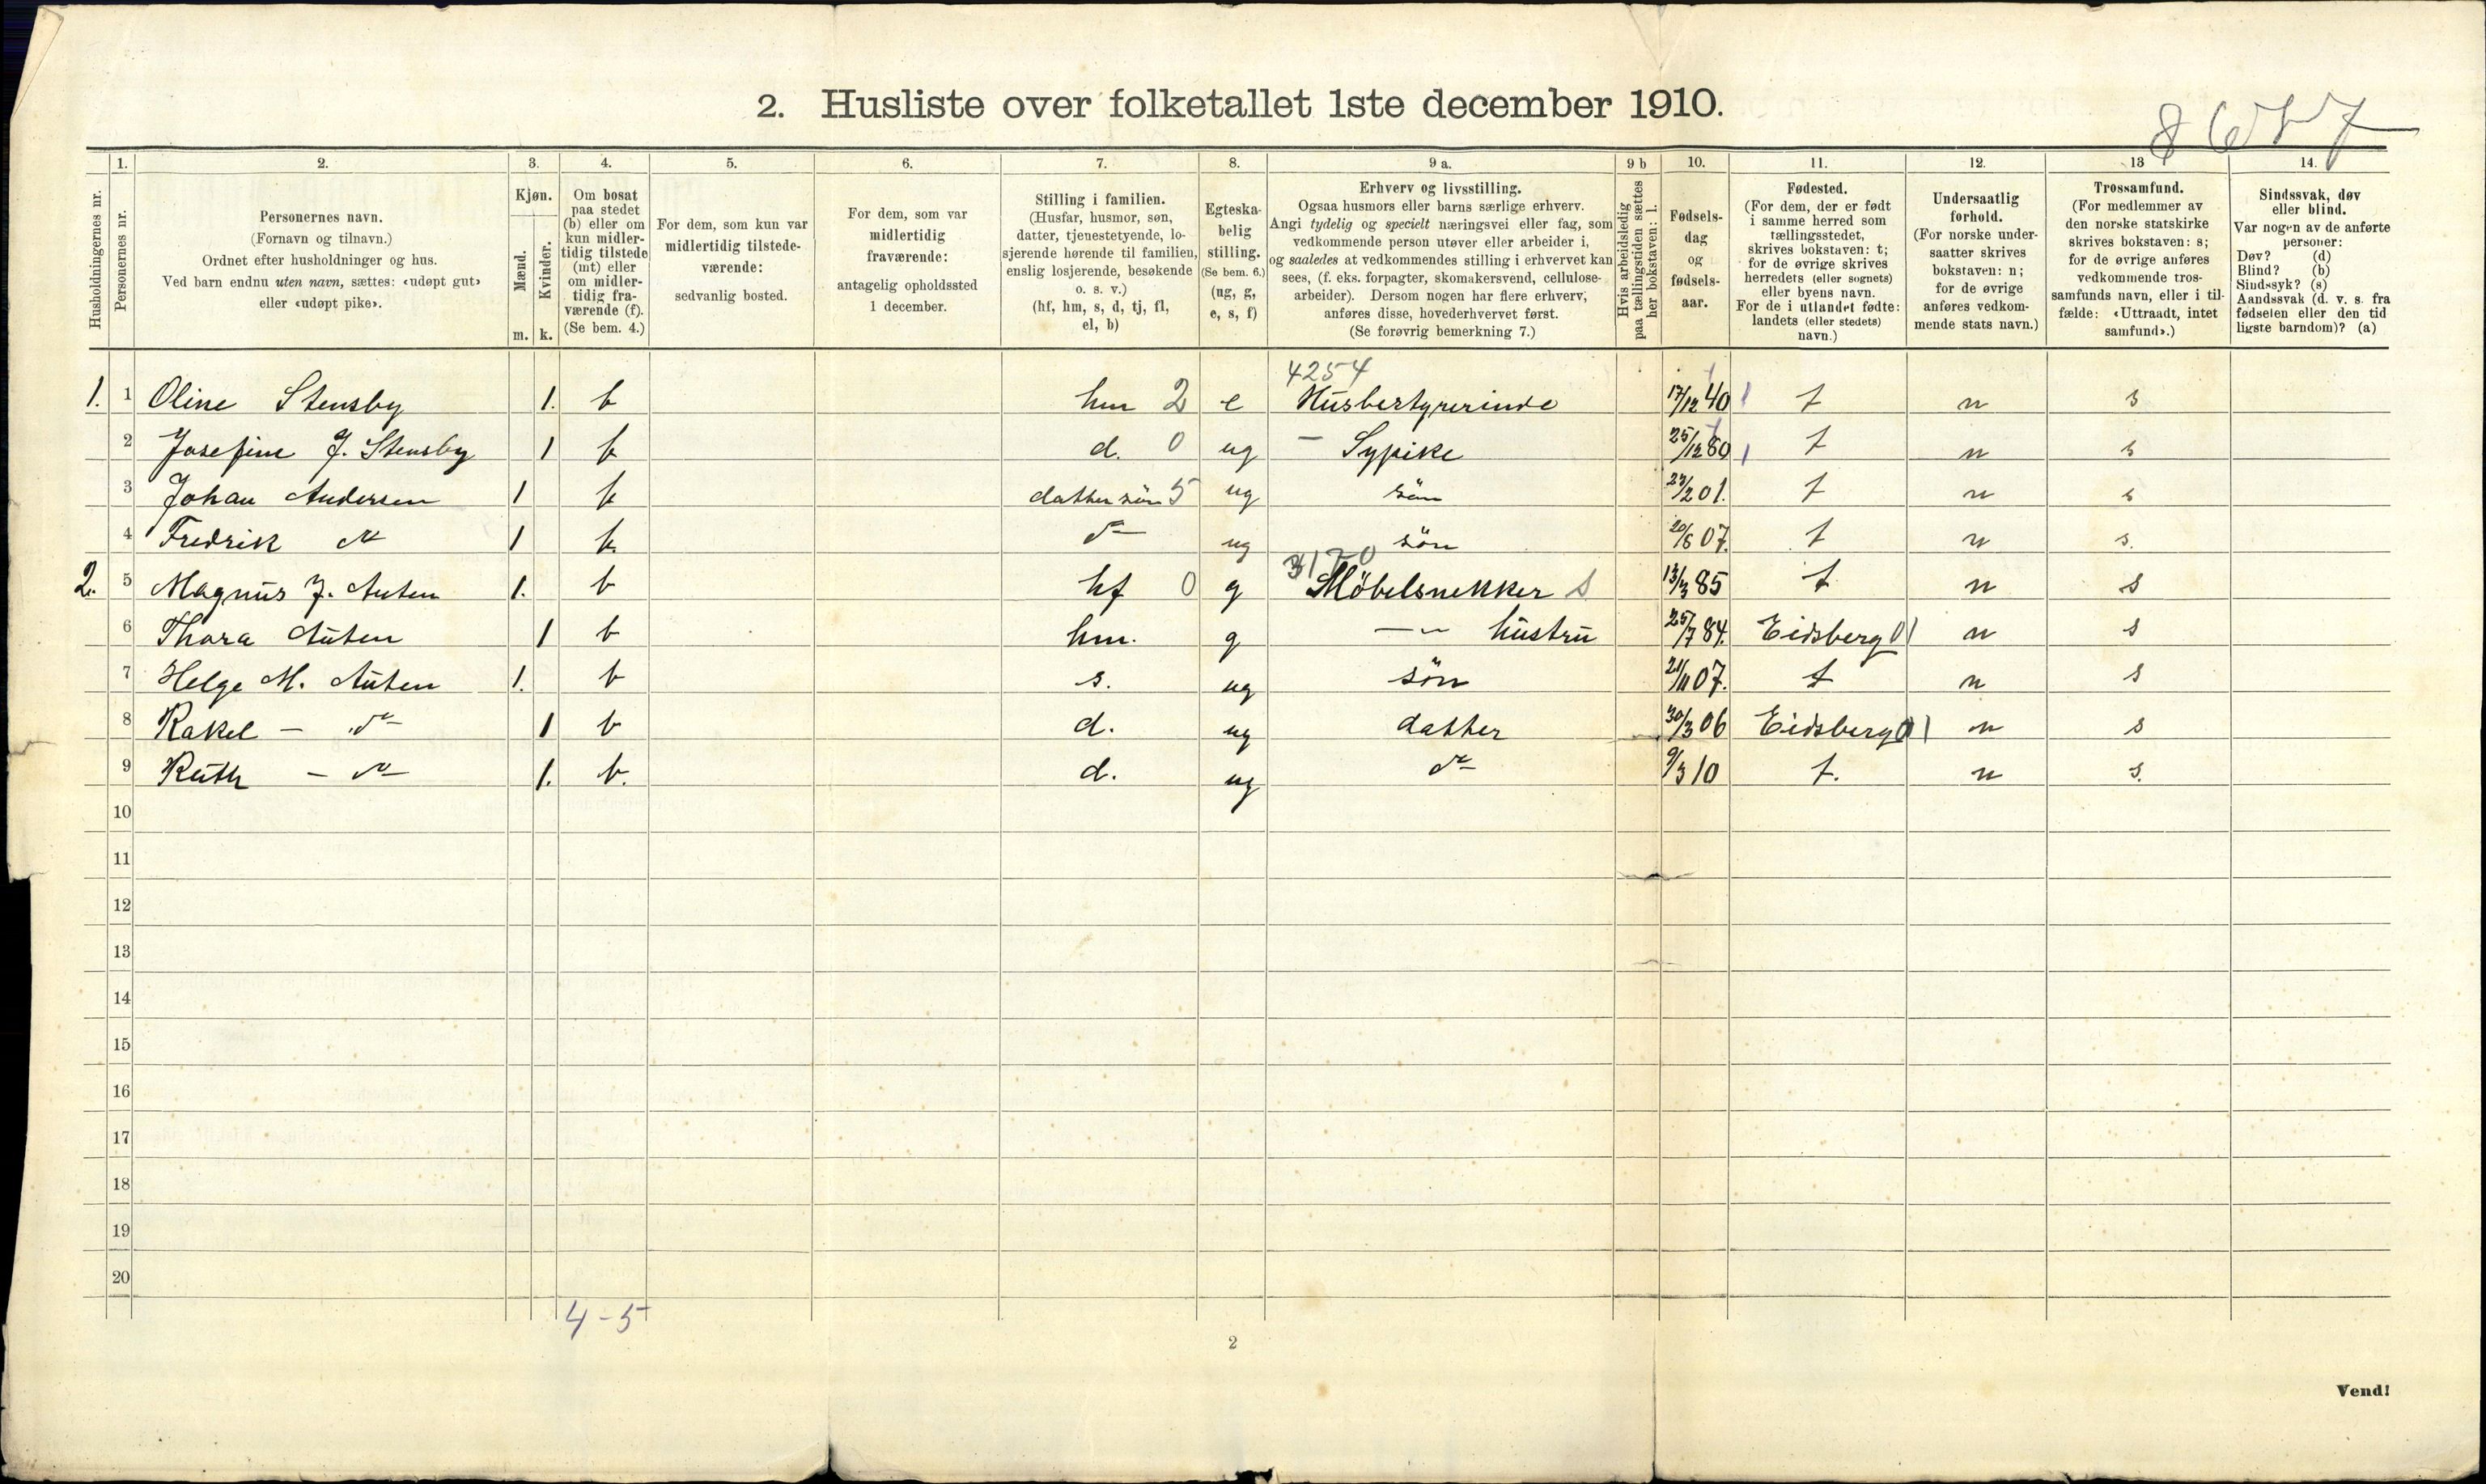 2. Husliste over folketallet 1ste december 1910.
Husholdningernes nr.
1.
Personernes nr.
2.
Personernes navn.
(Fornavn og tilnavn.)
Ordnet efter husholdninger og hus.
Ved barn endnu uten navn, sættes: «udøpt gut»
eller «udøpt pike».
3.
Kjøn.
Mænd.
Kvinder.
m. k.
4.
Om bosat
paa stedet
(b) eller om
kun midler-
tidig tilstede
(mt) eller
om midler-
tidig fra-
værende (f).
(Se bem. 4.)
5.
For dem, som kun var
midlertidig tilstede-
værende:
sedvanlig bosted.
6.
For dem, som var
midlertidig
fraværende:
antagelig opholdssted
1 december.
7.
Stilling i familien.
(Husfar, husmor, søn,
datter, tjenestetyende, lo-
sjerende hørende til familien,
enslig losjerende, besøkende
o. s. v.)
(hf, hm, s, d, tj, fl,
el, b)
8.
Egteska-
belig
stilling.
(Se bem. 6.)
(ug, g,
e, s, f)
9 a.
Erhverv og livsstilling.
Ogsaa husmors eller barns særlige erhverv.
Angi tydelig og specielt næringsvei eller fag, som
vedkommende person utøver eller arbeider i,
og saaledes at vedkommendes stilling i erhvervet kan
sees, (f. eks. forpagter, skomakersvend, cellulose-
arbeider). Dersom nogen har flere erhverv,
anføres disse, hovederhvervet først.
(Se forøvrig bemerkning 7.)
9 b
Hvis arbeidsledig
paa tællingstiden sættes
her bokstaven: l.
10.
Fødsels-
dag
og
fødsels-
aar.
11.
Fødested.
(For dem, der er født
i samme herred som
tællingsstedet,
skrives bokstaven: t;
for de øvrige skrives
herredets (eller sognets)
eller byens navn.
For de i utlandet fødte:
landets (eller stedets)
navn.)
12.
Undersaatlig
forhold.
(For norske under-
saatter skrives
bokstaven: n;
for de øvrige
anføres vedkom-
mende stats navn.)
13
Trossamfund.
(For medlemmer av
den norske statskirke
skrives bokstaven: s;
for de øvrige anføres
vedkommende tros-
samfunds navn, eller i til-
fælde: «Uttraadt, intet
samfund».)
14.
Sindssvak, døv
eller blind.
Var nogen av de anførte
personer:
Døv? (d)
Blind? (b)
Sindssyk? (s)
Aandssvak (d. v. s. fra
fødselen eller den tid
ligste barndom)? (a)
4254
1. 1 Oline Stensby 1. b hm 2 e Husbestyrerinde 17/12 40 t n s
2 Josefine J. Stensby 1 b d. 0 ug – Sypike 25/12 80 t n s
3 Johan Andersen 1 b datter sön 5 ug sön 2 01. t n s
4 Fredrik do 1 b. do ug sön 20/6 07. t n s.
3170
2. 5 Magnus J. Auten 1. b hf 0 g Möbelsnekker S 13/3 85 t n s
6 Thora Auten 1 b hm. g — " — hustru 25/7 84. Eidsberg 01 n s
7 Helge M. Auten 1. b s. ug sön 21/11 07. t n s
8 Rakel – do 1 b d. ug datter 30/3 06 Eidsberg 01 n s
9 Ruth – do 1. b. d. ug do 9/3 10 t. n s.
10
11
12
13
14
15
16
17
18
19
20
4-5
2
Vend!